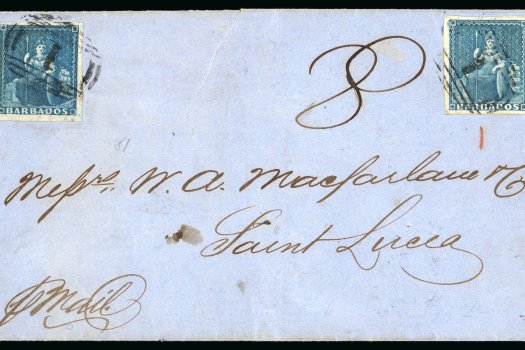 BARBADOS
BARBADOS
1
8
Messrs. W. A. Macfarlane & Co
Saint Lucea
p Mail.